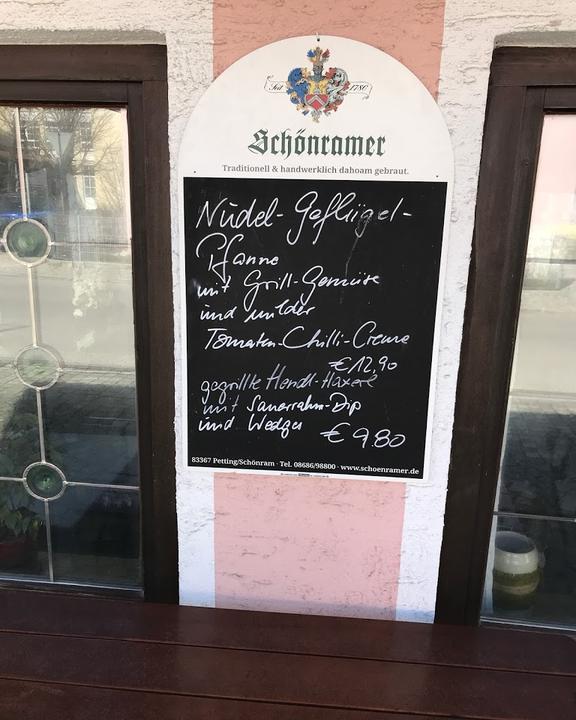 Seit 1780
Schönramer
Traditionell & handwerklich dahoam gebraut.
Nudel-Geflügel-
Pfanne
mit Grill-Gemüse
und milder
Tomaten-Chilli-Creme
€ 12,90
gegrillte Hendl-Haxerl
mit Sauerrahm-Dip
und Wedges
€ 9.80
83367 Petting/Schönram · Tel. 08686/98800 · www.schoenramer.de